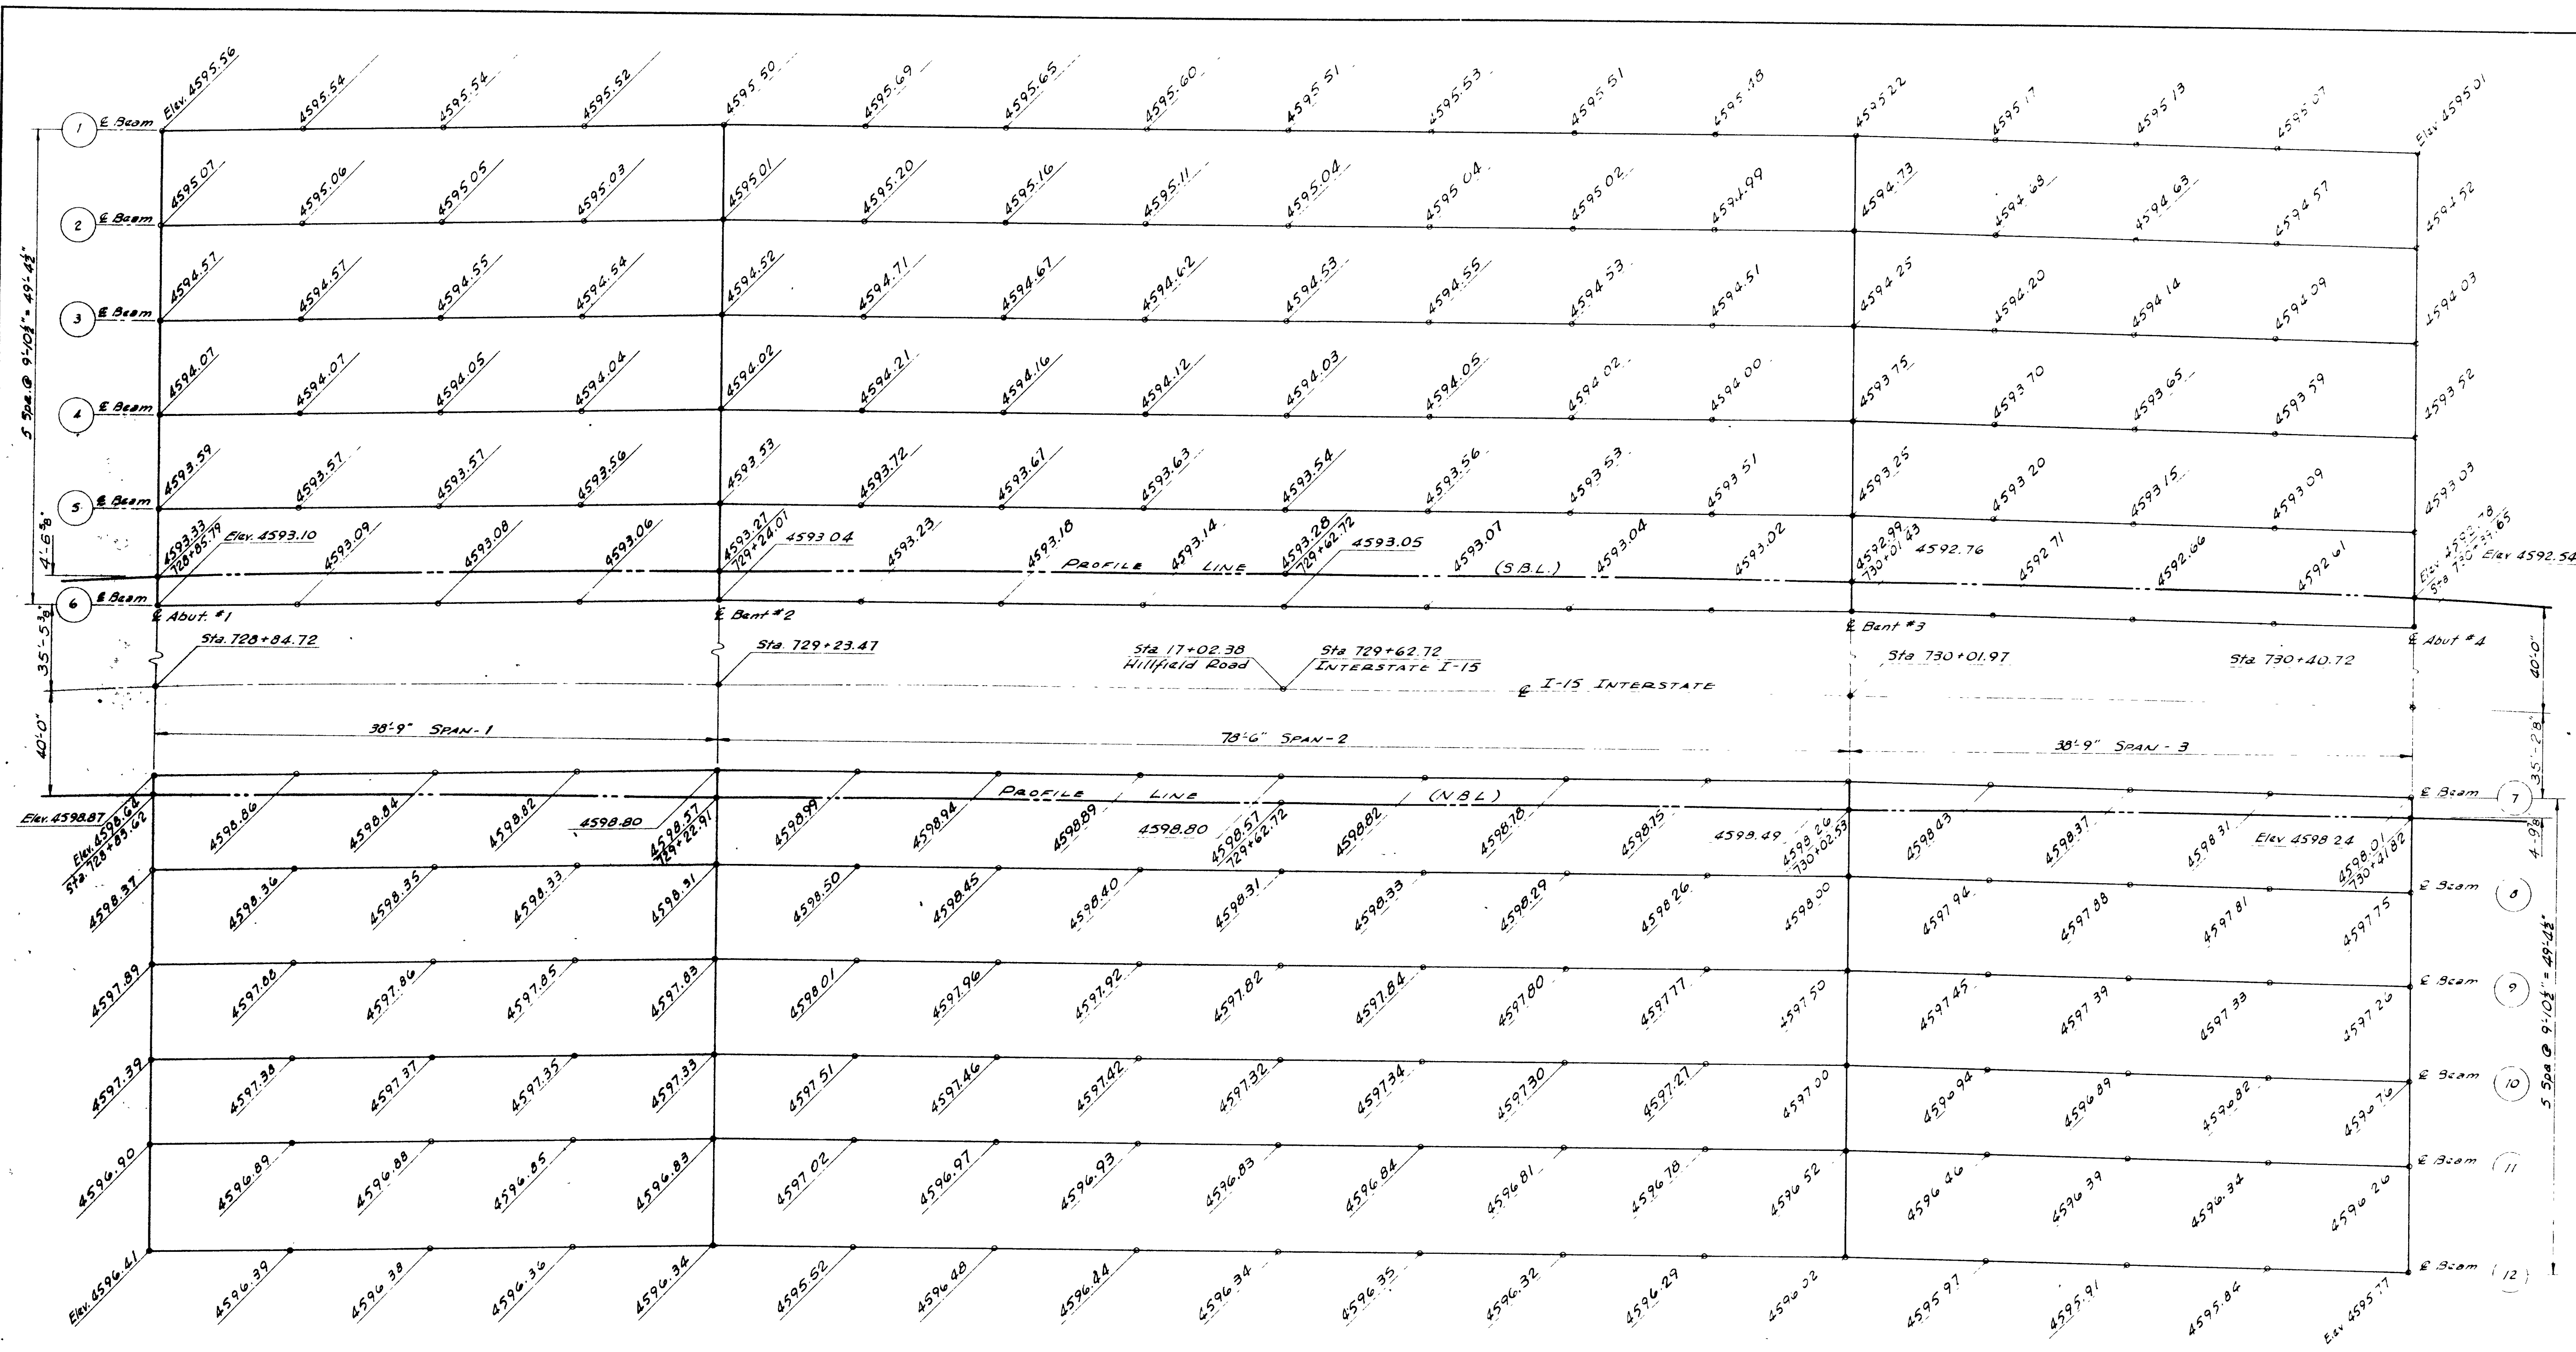 Elev. 4595.56 4595.54 4595.54 4595.52 4595.50 4595.69 4595.65 4595.60 4595.51 4595.53 4595.51 4595.48 4595.22 4595.17 4595.13 4595.07 Elev 4595.01
1 ℄ Beam
4595.07 4595.06 4595.05 4595.03 4595.01 4595.20 4595.16 4595.11 4595.04 4595.04 4595.02 4594.99 4594.73 4594.68 4594.63 4594.57 4594.52
2 ℄ Beam
5 Spa. @ 9'-10½" = 49'-4½"
4594.57 4594.57 4594.55 4594.54 4594.52 4594.71 4594.67 4594.62 4594.53 4594.55 4594.53 4594.51 4594.25 4594.20 4594.14 4594.09 4594.03
3 ℄ Beam
4594.07 4594.07 4594.05 4594.04 4594.02 4594.21 4594.16 4594.12 4594.03 4594.05 4594.02 4594.00 4593.75 4593.70 4593.65 4593.59 4593.52
4 ℄ Beam
4593.59 4593.57 4593.57 4593.56 4593.53 4593.72 4593.67 4593.63 4593.54 4593.56 4593.53 4593.51 4593.25 4593.20 4593.15 4593.09 4593.03
5 ℄ Beam
4'-6⅝"
4593.33
728+85.79
Elev. 4593.10 4593.09 4593.08 4593.06
4593.27
729+24.07
4593.04 4593.23 4593.18 4593.14
4593.28
729+62.72
4593.05 4593.07 4593.04 4593.02
4592.99
730+01.43
4592.76 4592.71 4592.66 4592.61
Elev 4592.78
Sta 730+39.65
Elev 4592.54
PROFILE LINE (S.B.L.)
6 ℄ Beam
℄ Abut. #1 ℄ Bent #2 ℄ Bent #3 ℄ Abut #4
35'-5⅜"
Sta. 728+84.72
Sta. 729+23.47
Sta 17+02.38
Hillfield Road
Sta 729+62.72
INTERSTATE I-15
Sta 730+01.97
Sta 730+40.72
40'-0"
℄ I-15 INTERSTATE
40'-0"
38'-9" SPAN-1 78'-6" SPAN-2 38'-9" SPAN - 3
PROFILE LINE (N.B.L.)
℄ Beam 7
Elev. 4598.87
Elev. 4598.64
4598.86 4598.84 4598.82 4598.80
4598.57
729+22.91
4598.99 4598.94 4598.89 4598.80
4598.57
729+62.72
4598.82 4598.78 4598.75 4598.49
4598.26
730+02.53
4598.43 4598.37 4598.31 Elev 4598.24
4598.01
730+41.82
℄ Beam 8
4598.37 4598.36 4598.35 4598.33 4598.31 4598.50 4598.45 4598.40 4598.31 4598.33 4598.29 4598.26 4598.00 4597.94 4597.88 4597.81 4597.75
℄ Beam 9
4597.89 4597.88 4597.86 4597.85 4597.83 4598.01 4597.96 4597.92 4597.82 4597.84 4597.80 4597.77 4597.50 4597.45 4597.39 4597.33 4597.26
5 Spa @ 9'-10½" = 49'-4½"
℄ Beam 10
4597.39 4597.38 4597.37 4597.35 4597.33 4597.51 4597.46 4597.42 4597.32 4597.34 4597.30 4597.27 4597.00 4596.94 4596.89 4596.82 4596.76
℄ Beam 11
4596.90 4596.89 4596.88 4596.85 4596.83 4597.02 4596.97 4596.93 4596.83 4596.84 4596.81 4596.78 4596.52 4596.46 4596.39 4596.34 4596.26
℄ Beam 12
Elev. 4596.41 4596.39 4596.38 4596.36 4596.34 4595.52 4596.48 4596.44 4596.34 4596.35 4596.32 4596.29 4596.02 4595.97 4595.91 4595.84 Elev 4595.77